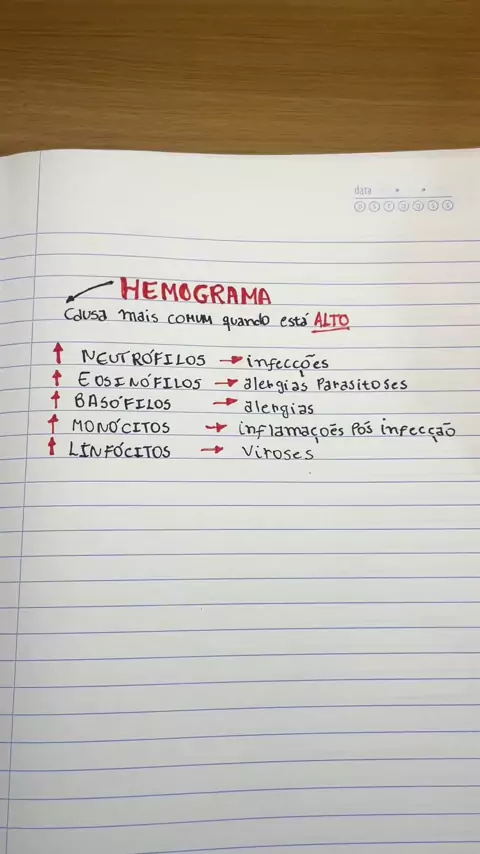 data
D S T Q Q S S
HEMOGRAMA
Causa mais comum quando está ALTO
↑ NEUTRÓFILOS → infecções
↑ EOSINÓFILOS → alergias Parasitoses
↑ BASÓFILOS → alergias
↑ MONÓCITOS → inflamações Pós infecção
↑ LINFÓCITOS → Viroses